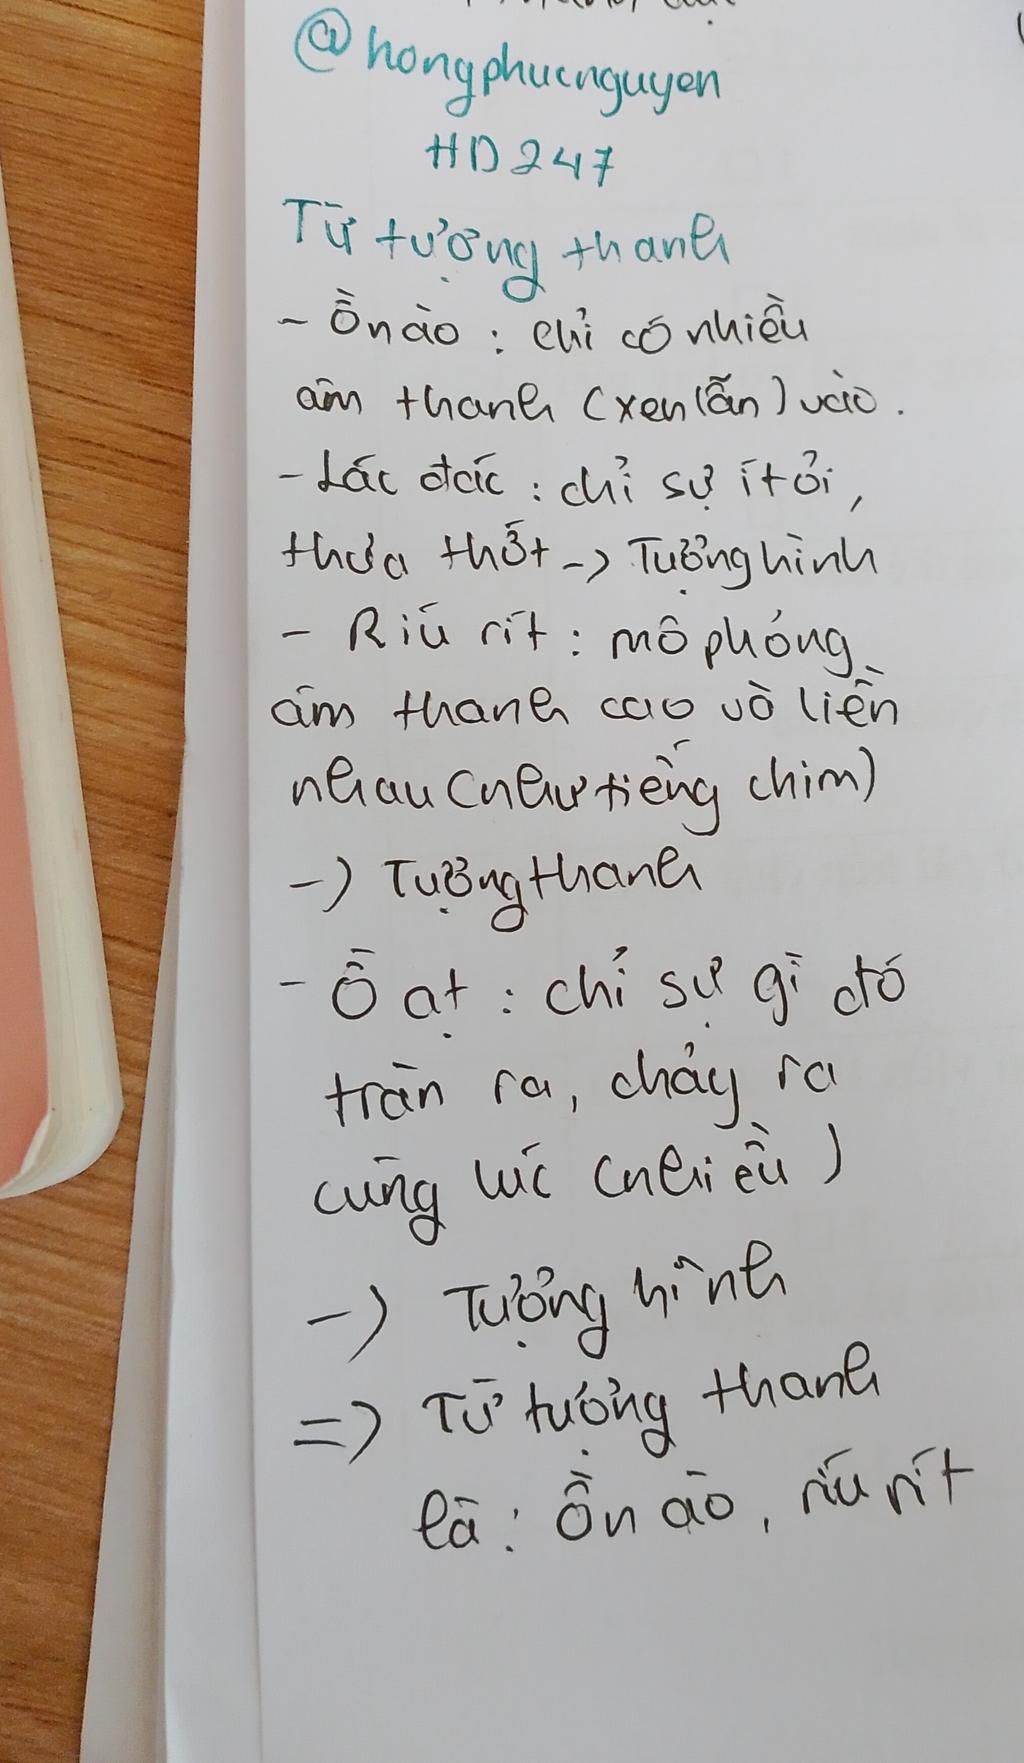 @hongphucnguyen
HD247
Từ tượng thanh
- Ồn ào : chỉ có nhiều
âm thanh (xen lẫn) vào.
- Lác đác : chỉ sự ít ỏi,
thưa thớt -> Tượng hình
- Ríu rít : mô phỏng
âm thanh cao và liền
nhau (như tiếng chim)
-> Tượng thanh
- Ồ ạt : chỉ sự gì đó
tràn ra, chảy ra
cùng lúc (nhiều)
-> Tượng hình
=> Từ tượng thanh
là : Ồn ào, ríu rít